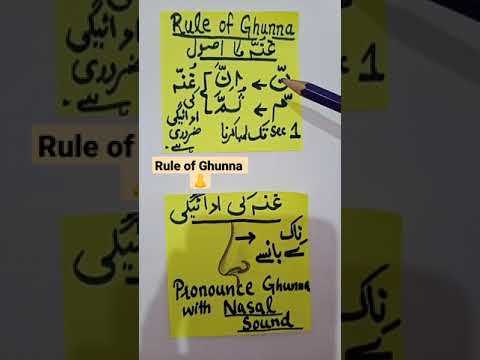 Rule of Ghunna
غنّہ کا اصول
نّ ← اِنَّ } غُنّہ
مّ ← ثُمَّ } کی
ادائیگی
ضروری
ہے۔
1 sec تک لمبا کرنا
Rule of Ghunna
غنہ کی ادائیگی
ناک
کے بانسے
Pronounce Ghunna
with Nasal
Sound